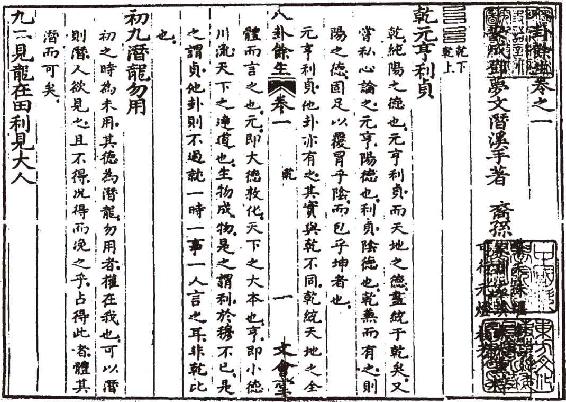 八卦餘生卷之一
鄧夢文潛溪手著 裔孫
乾下
乾上
乾元亨利貞
乾純陽之德也元亨利貞而天地之德盡統于乾矣又
嘗私心論之元亨陽德也利貞陰德也乾兼而有之則
陽之德固足以覆冒乎陰而包乎坤者也
元亨利貞他卦亦有之其實與乾不同乾統天地之全
八卦餘生 卷一 乾 一 文會堂
體而言之也元即大德敦化天下之大本也亨即小德
川流天下之達道也生物成物是之謂利於穆不已是
之謂貞他卦則不過就一時一事一人言之耳非乾比
也
初九潛龍勿用
初之時為未用其德為潛龍勿用者權在我也可以潛
則潛人欲見之且不得況得而浼之乎占得此者體其
潛而可矣
九二見龍在田利見大人